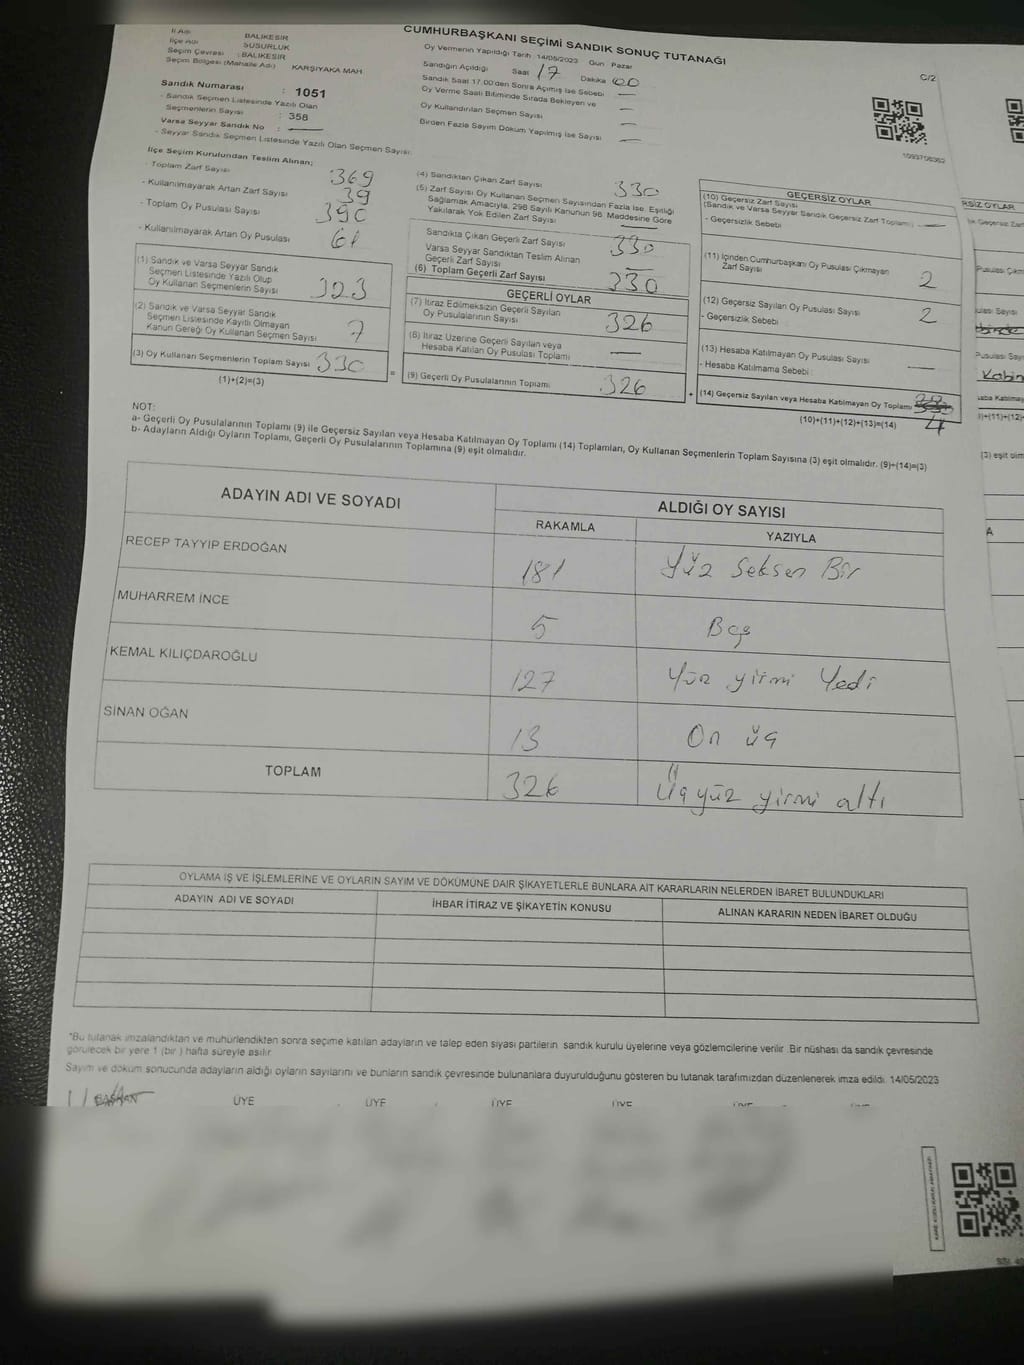 CUMHURBAŞKANI SEÇİMİ SANDIK SONUÇ TUTANAĞI
C/2
İl Adı BALIKESİR
İlçe Adı SUSURLUK
Seçim Çevresi : BALIKESİR
Seçim Bölgesi (Mahalle Adı) KARŞIYAKA MAH
Sandık Numarası : 1051
- Sandık Seçmen Listesinde Yazılı Olan
Seçmenlerin Sayısı : 358
Varsa Seyyar Sandık No :
- Seyyar Sandık Seçmen Listesinde Yazılı Olan Seçmen Sayısı:
Oy Vermenin Yapıldığı Tarih : 14/05/2023 Gün Pazar
Sandığın Açıldığı Saat 17 Dakika 00
Sandık Saat 17.00'den Sonra Açımış İse Sebebi
Oy Verme Saati Bitiminde Sırada Bekleyen ve
Oy Kullandırılan Seçmen Sayısı
Birden Fazla Sayım Döküm Yapılmış İse Sayısı
1093706362
İlçe Seçim Kurulundan Teslim Alınan;
- Toplam Zarf Sayısı 369
- Kullanılmayarak Artan Zarf Sayısı 39
- Toplam Oy Pusulası Sayısı 390
- Kullanılmayarak Artan Oy Pusulası 61
(1) Sandık ve Varsa Seyyar Sandık
Seçmen Listesinde Yazılı Olup
Oy Kullanan Seçmenlerin Sayısı 323
(2) Sandık ve Varsa Seyyar Sandık
Seçmen Listesinde Kayıtlı Olmayan
Kanun Gereği Oy Kullanan Seçmen Sayısı 7
(3) Oy Kullanan Seçmenlerin Toplam Sayısı 330
(1)+(2)=(3)
(4) Sandıktan Çıkan Zarf Sayısı 330
(5) Zarf Sayısı Oy Kullanan Seçmen Sayısından Fazla İse, Eşitliği
Sağlamak Amacıyla, 298 Sayılı Kanunun 98. Maddesine Göre
Yakılarak Yok Edilen Zarf Sayısı
Sandıkta Çıkan Geçerli Zarf Sayısı 330
Varsa Seyyar Sandıktan Teslim Alınan
Geçerli Zarf Sayısı
(6) Toplam Geçerli Zarf Sayısı 330
=
GEÇERLİ OYLAR
(7) İtiraz Edilmeksizin Geçerli Sayılan
Oy Pusulalarının Sayısı 326
(8) İtiraz Üzerine Geçerli Sayılan veya
Hesaba Katılan Oy Pusulası Toplamı
(9) Geçerli Oy Pusulalarının Toplamı 326
+
GEÇERSİZ OYLAR
(10) Geçersiz Zarf Sayısı
(Sandık ve Varsa Seyyar Sandık Geçersiz Zarf Toplamı)
- Geçersizlik Sebebi
(11) İçinden Cumhurbaşkanı Oy Pusulası Çıkmayan
Zarf Sayısı 2
(12) Geçersiz Sayılan Oy Pusulası Sayısı 2
- Geçersizlik Sebebi
(13) Hesaba Katılmayan Oy Pusulası Sayısı
- Hesaba Katılmama Sebebi :
(14) Geçersiz Sayılan veya Hesaba Katılmayan Oy Toplamı
(10)+(11)+(12)+(13)=(14) 4
NOT:
a- Geçerli Oy Pusulalarının Toplamı (9) ile Geçersiz Sayılan veya Hesaba Katılmayan Oy Toplamı (14) Toplamları, Oy Kullanan Seçmenlerin Toplam Sayısına (3) eşit olmalıdır. (9)+(14)=(3)
b- Adayların Aldığı Oyların Toplamı, Geçerli Oy Pusulalarının Toplamına (9) eşit olmalıdır.
ADAYIN ADI VE SOYADI ALDIĞI OY SAYISI
RAKAMLA YAZIYLA
RECEP TAYYİP ERDOĞAN 181 Yüz Seksen Bir
MUHARREM İNCE 5 Beş
KEMAL KILIÇDAROĞLU 127 Yüz yirmi Yedi
SİNAN OĞAN 13 On üç
TOPLAM 326 Üçyüz yirmi altı
OYLAMA İŞ VE İŞLEMLERİNE VE OYLARIN SAYIM VE DÖKÜMÜNE DAİR ŞİKAYETLERLE BUNLARA AİT KARARLARIN NELERDEN İBARET BULUNDUKLARI
ADAYIN ADI VE SOYADI İHBAR İTİRAZ VE ŞİKAYETİN KONUSU ALINAN KARARIN NEDEN İBARET OLDUĞU
*Bu tutanak imzalandıktan ve mühürlendikten sonra seçime katılan adayların ve talep eden siyasi partilerin sandık kurulu üyelerine veya gözlemcilerine verilir. Bir nüshası da sandık çevresinde
görülecek bir yere 1 (bir ) hafta süreyle asılır.
Sayım ve döküm sonucunda adayların aldığı oyların sayılarını ve bunların sandık çevresinde bulunanlara duyurulduğunu gösteren bu tutanak tarafımızdan düzenlenerek imza edildi. 14/05/2023
BAŞKAN ÜYE ÜYE ÜYE ÜYE